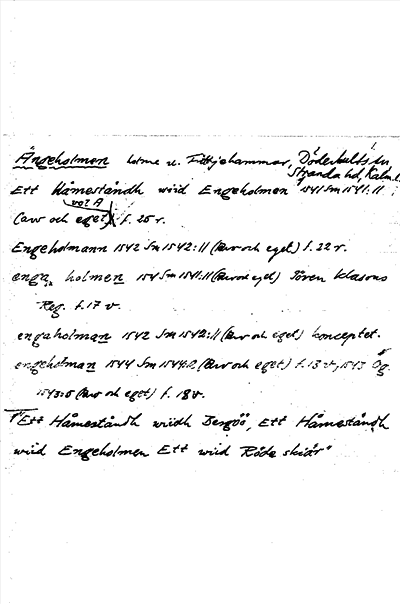 Ängeholmen holme u. Fittjehammar, Döderhults sn,
Stranda hd, Kalm. l.
Ett Håmeståndh wiid Engeholmen 1541 Sm 1541:11
vol A
(Arv och eget) f. 25 r.
Engeholmann 1542 Sm 1542:11 (Arv och eget) f. 22 r.
enga holmen 154 Sm 1541:11 (Arv och eget) Jören Klasons
Reg. f. 17 v.
engaholman 1542 Sm 1542:11 (Arv och eget) konceptet.
engeholman 1544 Sm 1544:2 (Arv och eget) f. 13 v, 1543 Ög
1543:5 (Arv och eget) f. 18 v.
"Ett Håmeståndh wiidh Bergöö, Ett Håmeståndh
wiid Engeholmen Ett wiid Röde skiär"